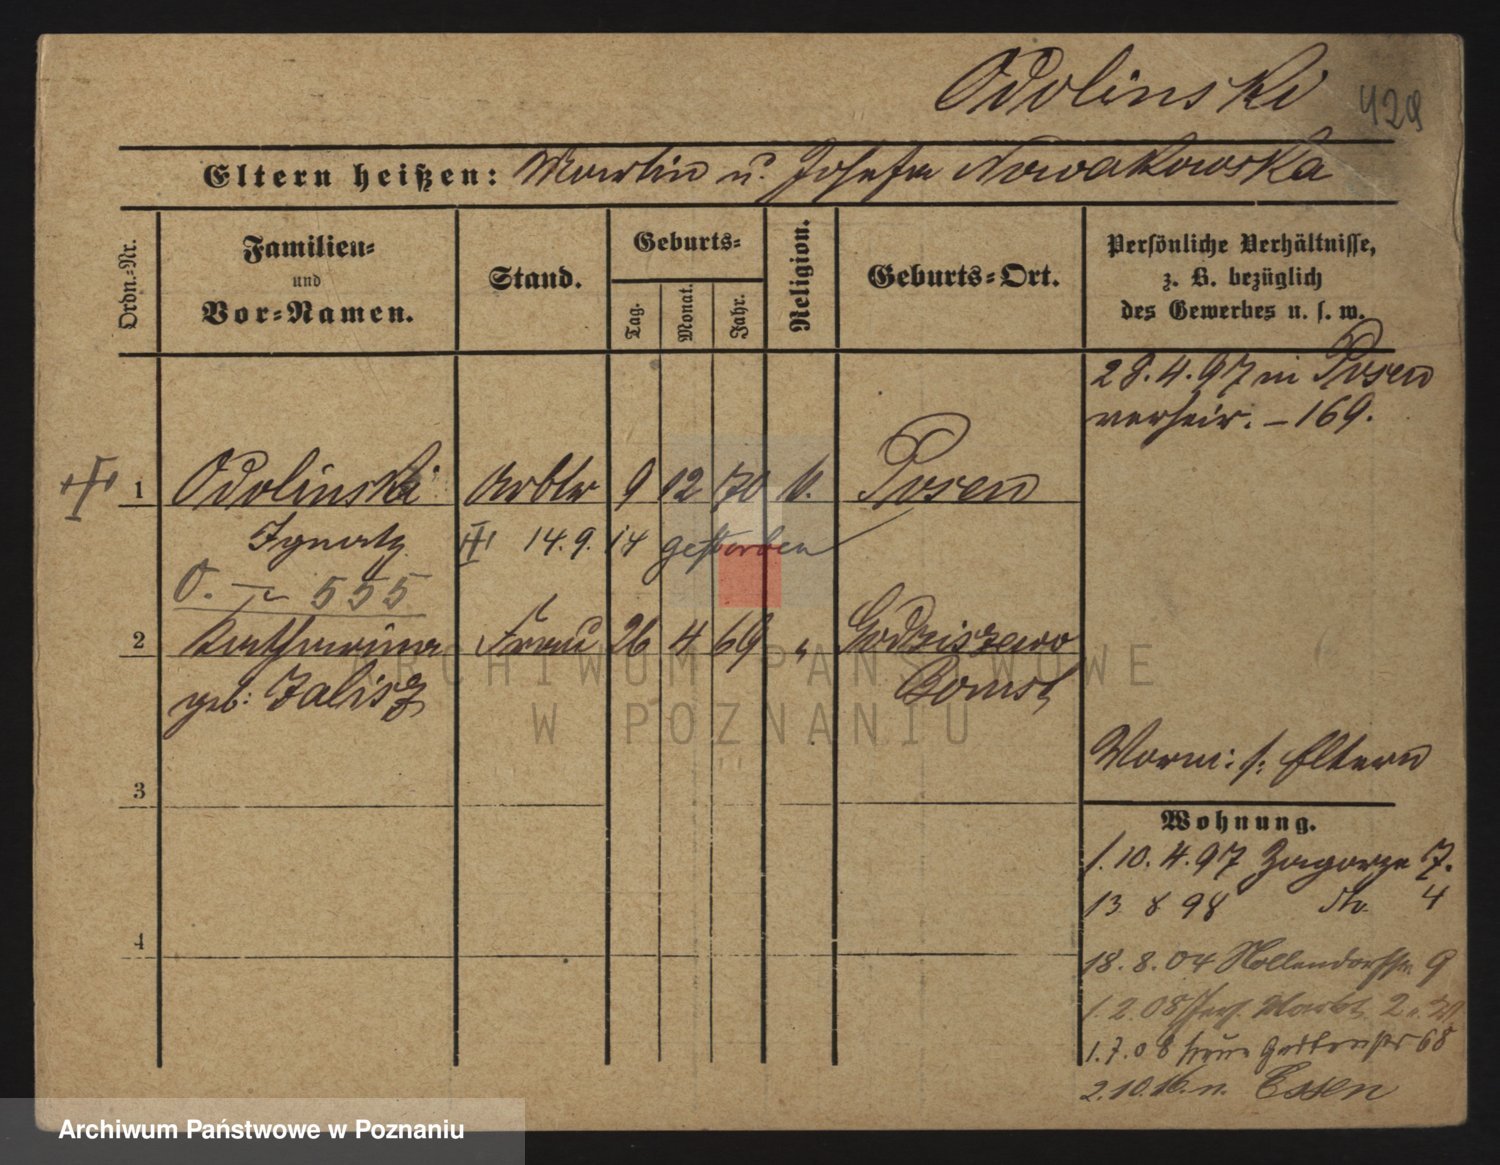 Odolinski
429
Eltern heißen: Martin u. Josefa Nowakowska
Ordn.-Nr.
Familien-
und
Vor-Namen.
Stand.
Geburts-
Tag.
Monat.
Jahr.
Religion.
Geburts-Ort.
Persönliche Verhältnisse,
z. B. bezüglich
des Gewerbes u. s. w.
28.4.97 in Posen
verheir. – 169.
1 Odolinski Arbtr 9 12 70 k. Posen
Ignatz 14.9.14 gestorben
O. 555
2 Katharina Frau 26 4 69 " Godziszewo
geb: Jalisz Bomst
ARCHIWUM PAŃSTWOWE
W POZNANIU
Vorm: s: Eltern
3
Wohnung.
1.10.4.97 Zagorze 7.
13 8 98 do. 4
4
18.8.04 Nollendorfstr. 9
1.2.08 Markt 2
1.7.08 Gartenstr 68
2.10.16. n. Essen
Archiwum Państwowe w Poznaniu